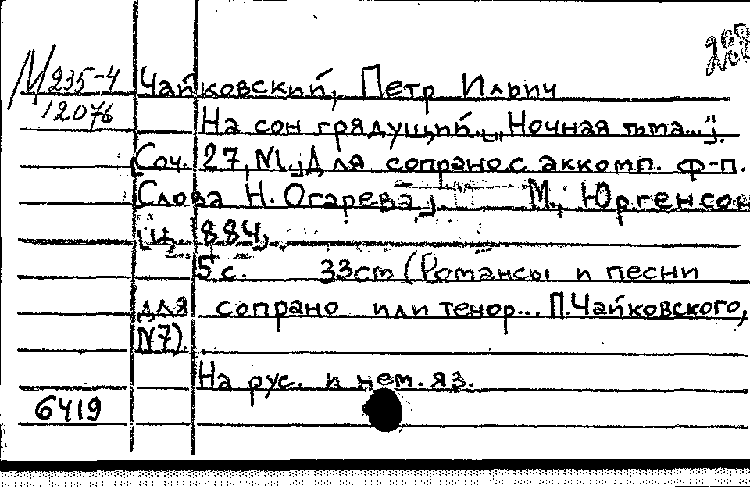 288
М 235-4
12076
Чайковский, Петр Ильич
На сон грядущий. „Ночная тьма..."
(Соч. 27, №1.) Для сопрано с аккомп. ф-п.
Слова Н. Огарева. М.; Юргенсон
ц. 884,
5 с. 33 cm (Романсы и песни
для сопрано или тенор... П. Чайковского,
№7).
На рус. и нем. яз.
6419